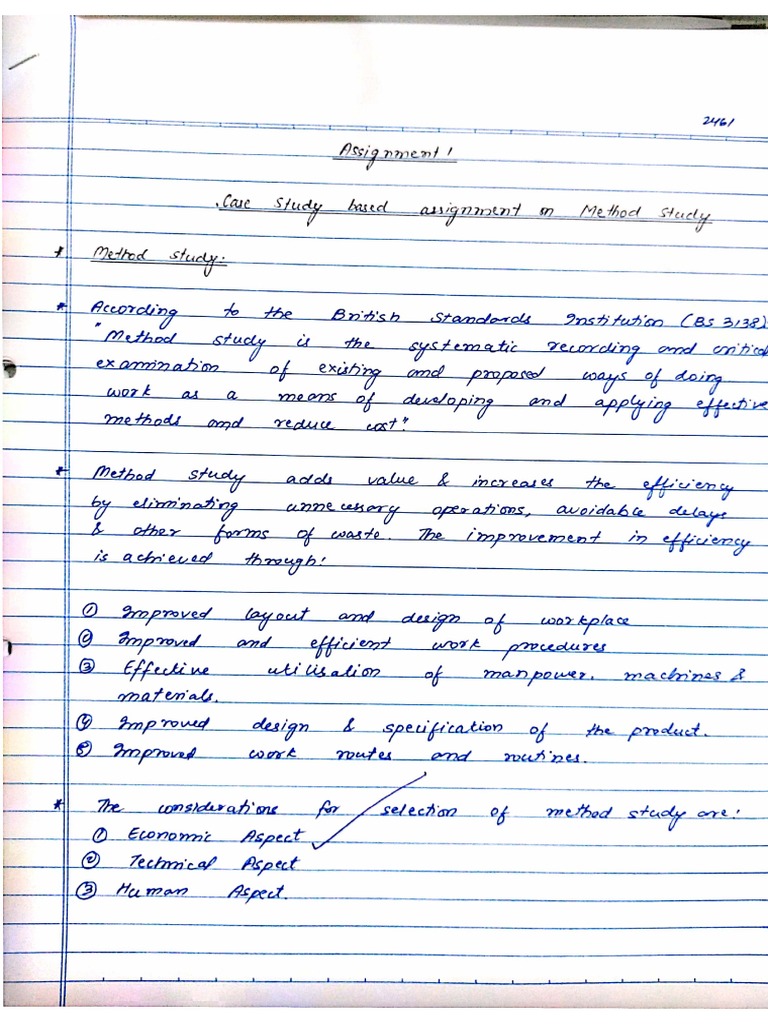 2461
Assignment 1
Case study based assignment on Method study
* Method study:
* According to the British Standards Institution (BS 3138)
"Method study is the systematic recording and critical
examination of existing and proposed ways of doing
work as a means of developing and applying effective
methods and reduce cost".
* Method study adds value & increases the efficiency
by eliminating unnecessory operations, avoidable delays
& other forms of waste. The improvement in efficiency
is achieved through:
① Improved layout and design of workplace
② Improved and efficient work procedures
③ Effective utilisation of manpower, machines &
materials.
④ Improved design & specification of the product.
⑤ Improved work routes and routines.
* The considerations for selection of method study are:
① Economic Aspect
② Technical Aspect
③ Human Aspect.